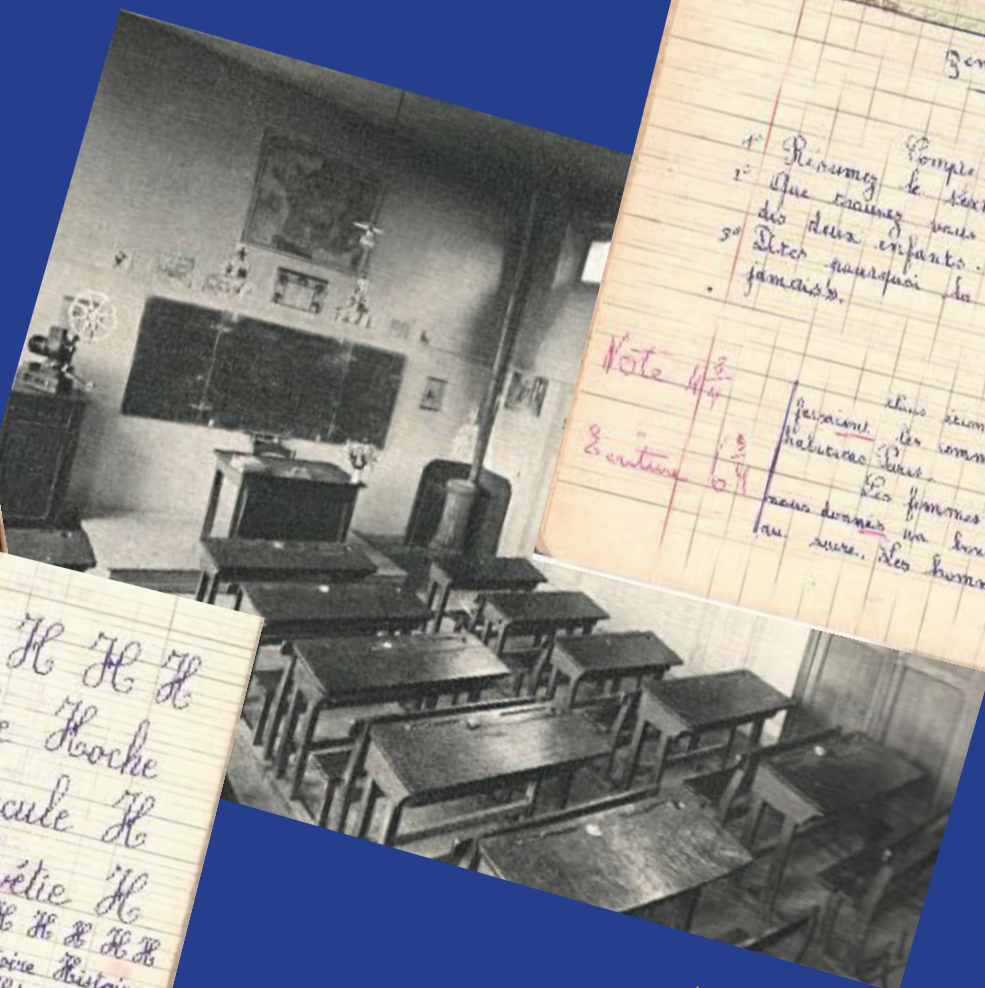 Compr
1° Résumez le text
2° Que trouvez vous
des deux enfants.
3° Dites pourquoi la
jamais».
Note 4 3/4
Ecriture 6 3/4
les comm
habitions Paris.
Les femmes
nous donnes un bon
au sucre. Les homm
H H H
e Hoche
cule H
vétie H
H H H H H
oire Histoire